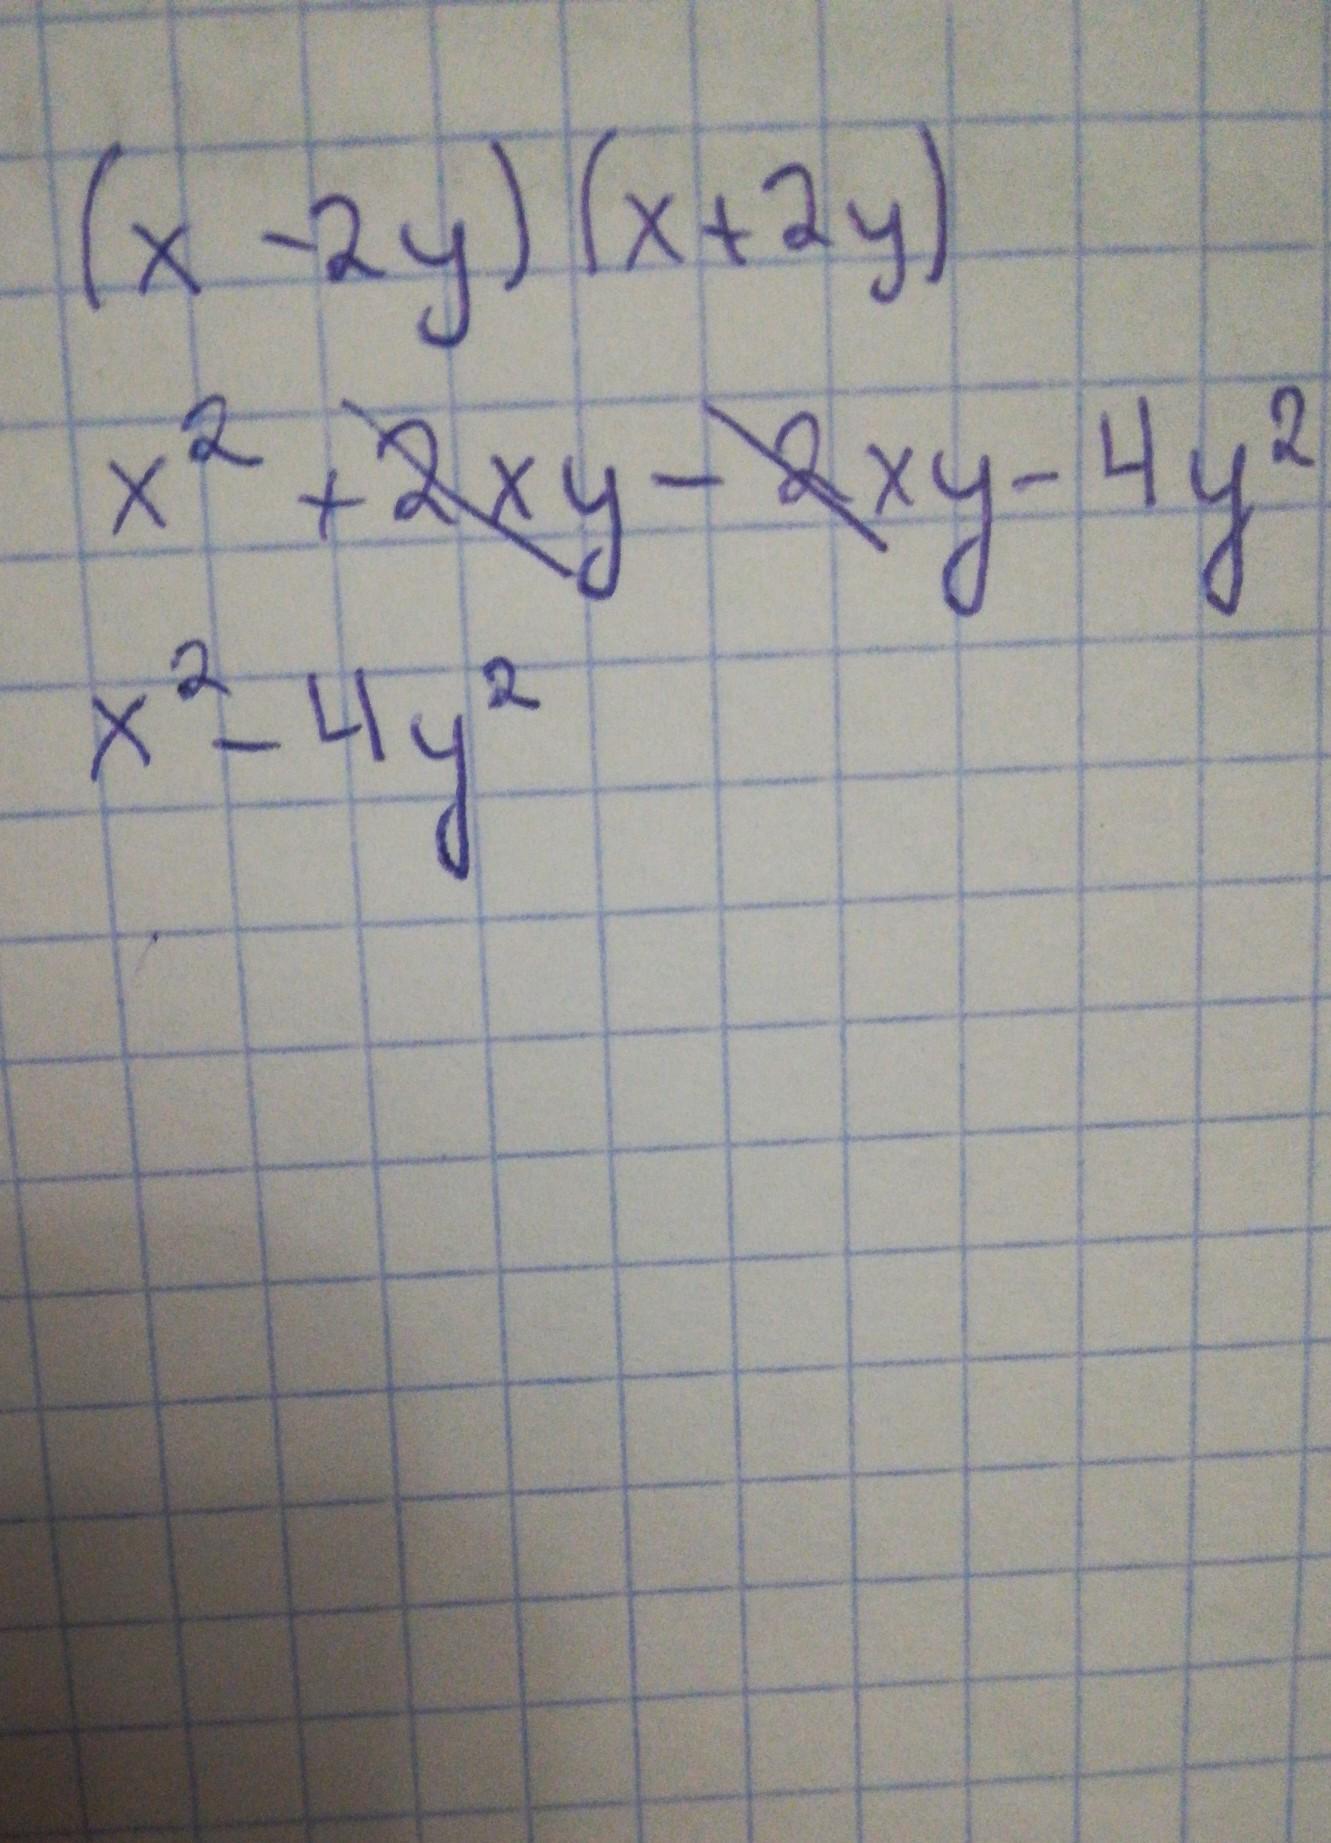 (x - 2y)(x + 2y)
x² + 2xy - 2xy - 4y²
x² - 4y²